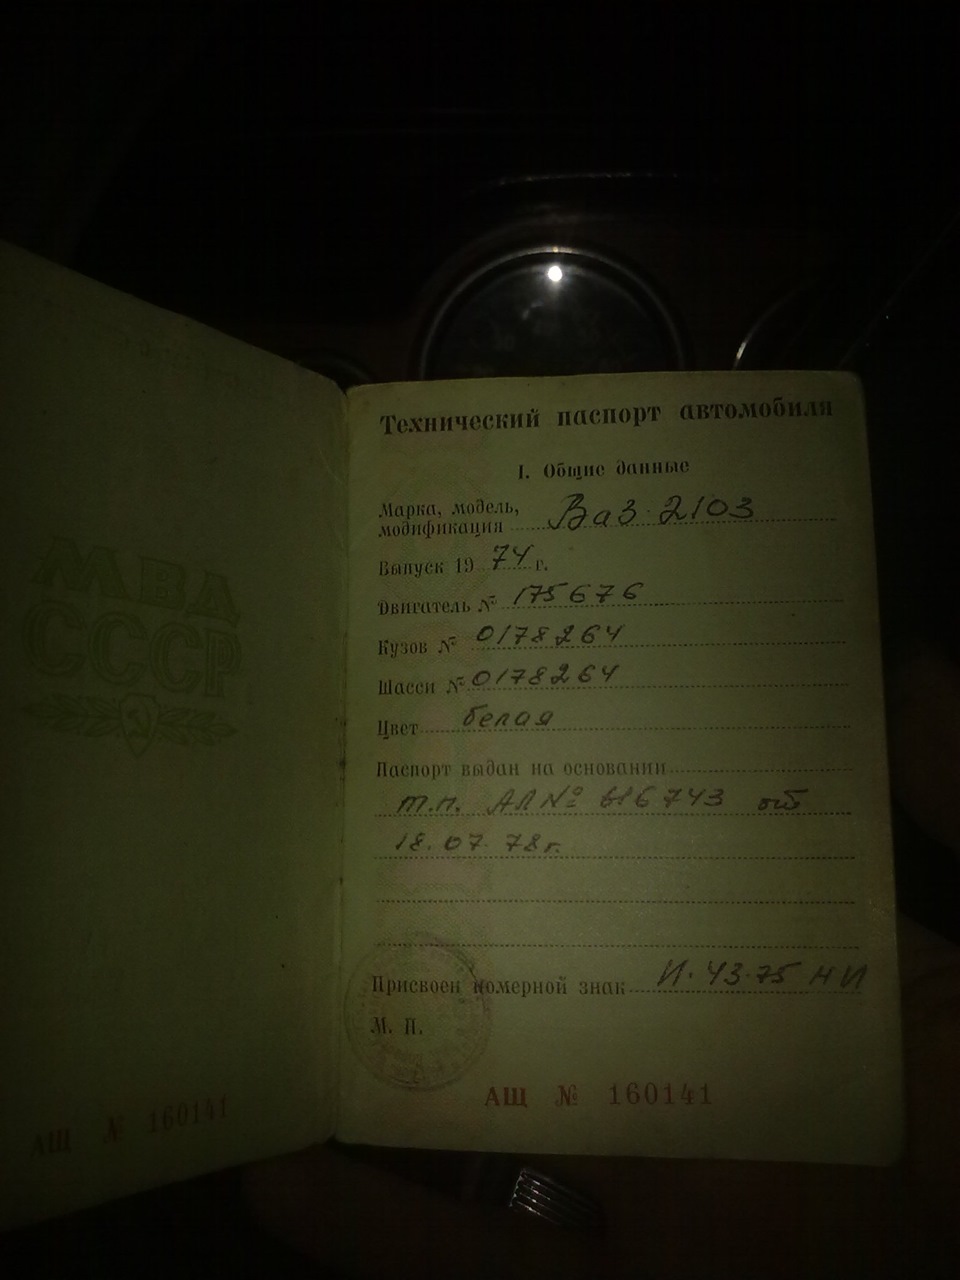 МВД
СССР
АЩ № 160141
Технический паспорт автомобиля
I. Общие данные
Марка, модель,
модификация Ваз 2103
Выпуск 1974 г.
Двигатель № 175676
Кузов № 0178264
Шасси № 0178264
Цвет белая
Паспорт выдан на основании
т.п. АЛ № 616743 от
18.07.78г.
Присвоен номерной знак И.43-75 НИ
М. П.
АЩ № 160141